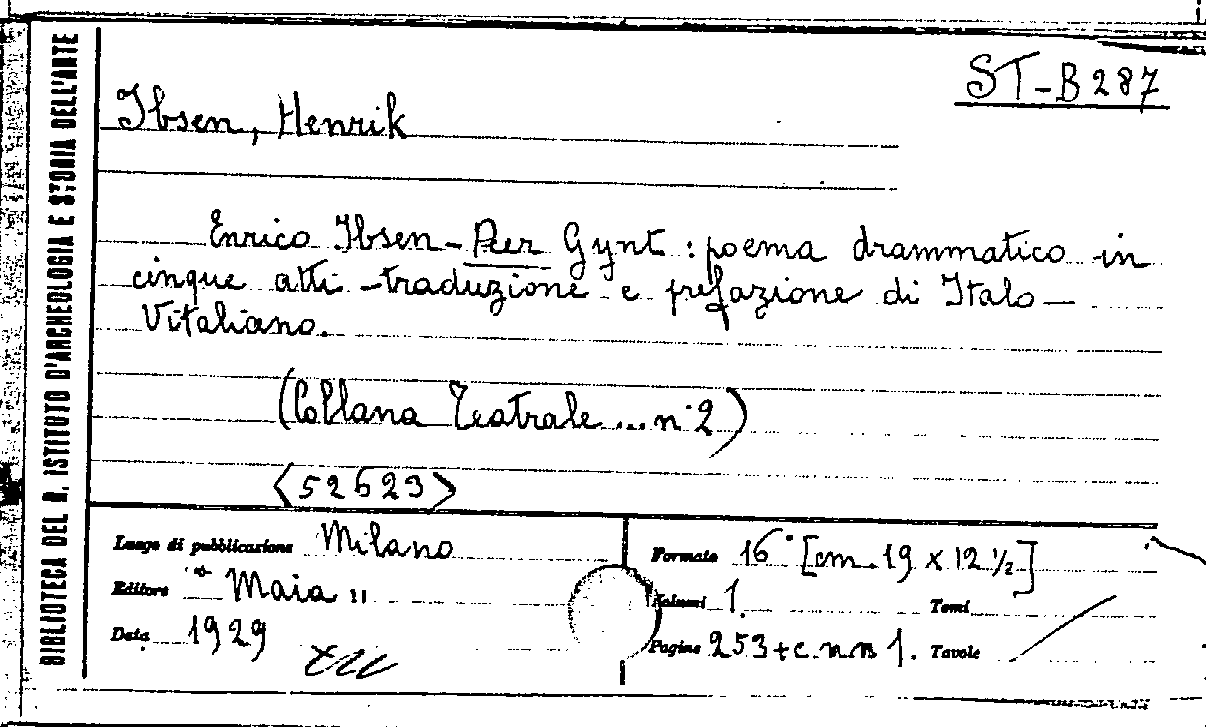 BIBLIOTECA DEL R. ISTITUTO D'ARCHEOLOGIA E STORIA DELL'ARTE
ST-B 287
Ibsen, Henrik
Enrico Ibsen - Peer Gynt : poema drammatico in
cinque atti - traduzione e prefazione di Italo
Vitaliano.
(Collana Teatrale ... n° 2)
<52623>
Luogo di pubblicazione Milano
Editore "Maia"
Data 1929
Formato 16° [cm. 19 x 12 ½]
Volumi 1 Tomi
Pagine 253 + c. n n 1. Tavole /